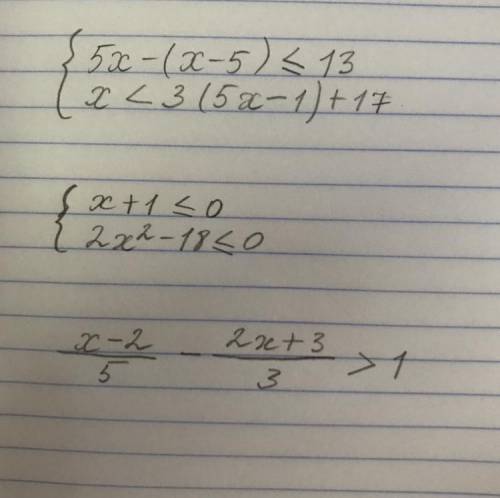 { 5x - (x - 5) ≤ 13
x < 3 (5x - 1) + 17
{ x + 1 ≤ 0
2x² - 18 ≤ 0
x - 2 / 5 - 2x + 3 / 3 > 1